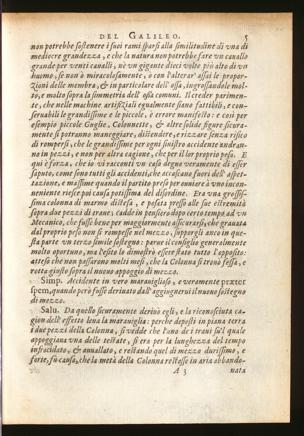 DEL GALILEO. 5
non potrebbe sostenere i suoi rami sparsi alla similitudine di vna di
mediocre grandezza, e che la natura non potrebbe fare vn cauallo
grande per venti caualli, nè vn gigante dieci volte più alto di vn
huomo, se non ò miracolosamente, ò con l'alterar' assai le propor-
zioni delle membra, & in particolare dell'ossa, ingrossandole mol-
to, e molto sopra la simmetria dell'ossa comuni. Il creder parimen-
te, che nelle machine artifiziali egualmente siano fattibili, e con-
seruabili le grandissime e le piccole, è errore manifesto: e così per
esempio piccole Guglie, Colonnette, & altre solide figure sicura-
mente si potranno maneggiare, distendere, e rizzare senza risico
di rompersi, che le grandissime per ogni sinistro accidente andran-
no in pezzi, e non per altra cagione, che per il lor proprio peso. E
quì è forza, che io vi racconti vn caso degno veramente di esser
saputo, come sono tutti gli accidenti, che accascano fuori dell'aspet-
tazione, e massime quando il partito preso per ouuiare à vno incon-
ueniente riesce poi causa potissima del disordine. Era vna grossis-
sima colonna di marmo distesa, e posata presso alle sue estremità
sopra due pezzi di traue; cadde in pensiero dopo certo tempo ad vn
Mecanico, che fusse bene per maggiormente assicurarsi, che grauata
dal proprio peso non si rompesse nel mezzo, supporgli anco in que-
sta parte vn terzo simile sostegno: parue il consiglio generalmente
molto oportuno, ma l'esito lo dimostrò essere stato tutto l'opposito:
atteso che non passarono molti mesi, che la Colonna si trouò fessa, e
rotta giusto sopra il nuouo appoggio di mezzo.
Simp. Accidente in vero marauiglioso, e veramente præter
spem, quando però fusse deriuato dall'aggiugnerui il nuouo sostegno
di mezzo.
Salu. Da quello sicuramente deriuò egli, e la riconosciuta ca-
gion dell'effetto leua la marauiglia: perche deposti in piana terra
i due pezzi della Colonna, si vedde che l'uno de i traui su'l quale
appoggiaua vna delle testate, si era per la lunghezza del tempo
infracidato, & auuallato, e restando quel di mezzo durissimo, e
forte, fù causa, che la metà della Colonna restasse in aria abbando-
A 3 nata